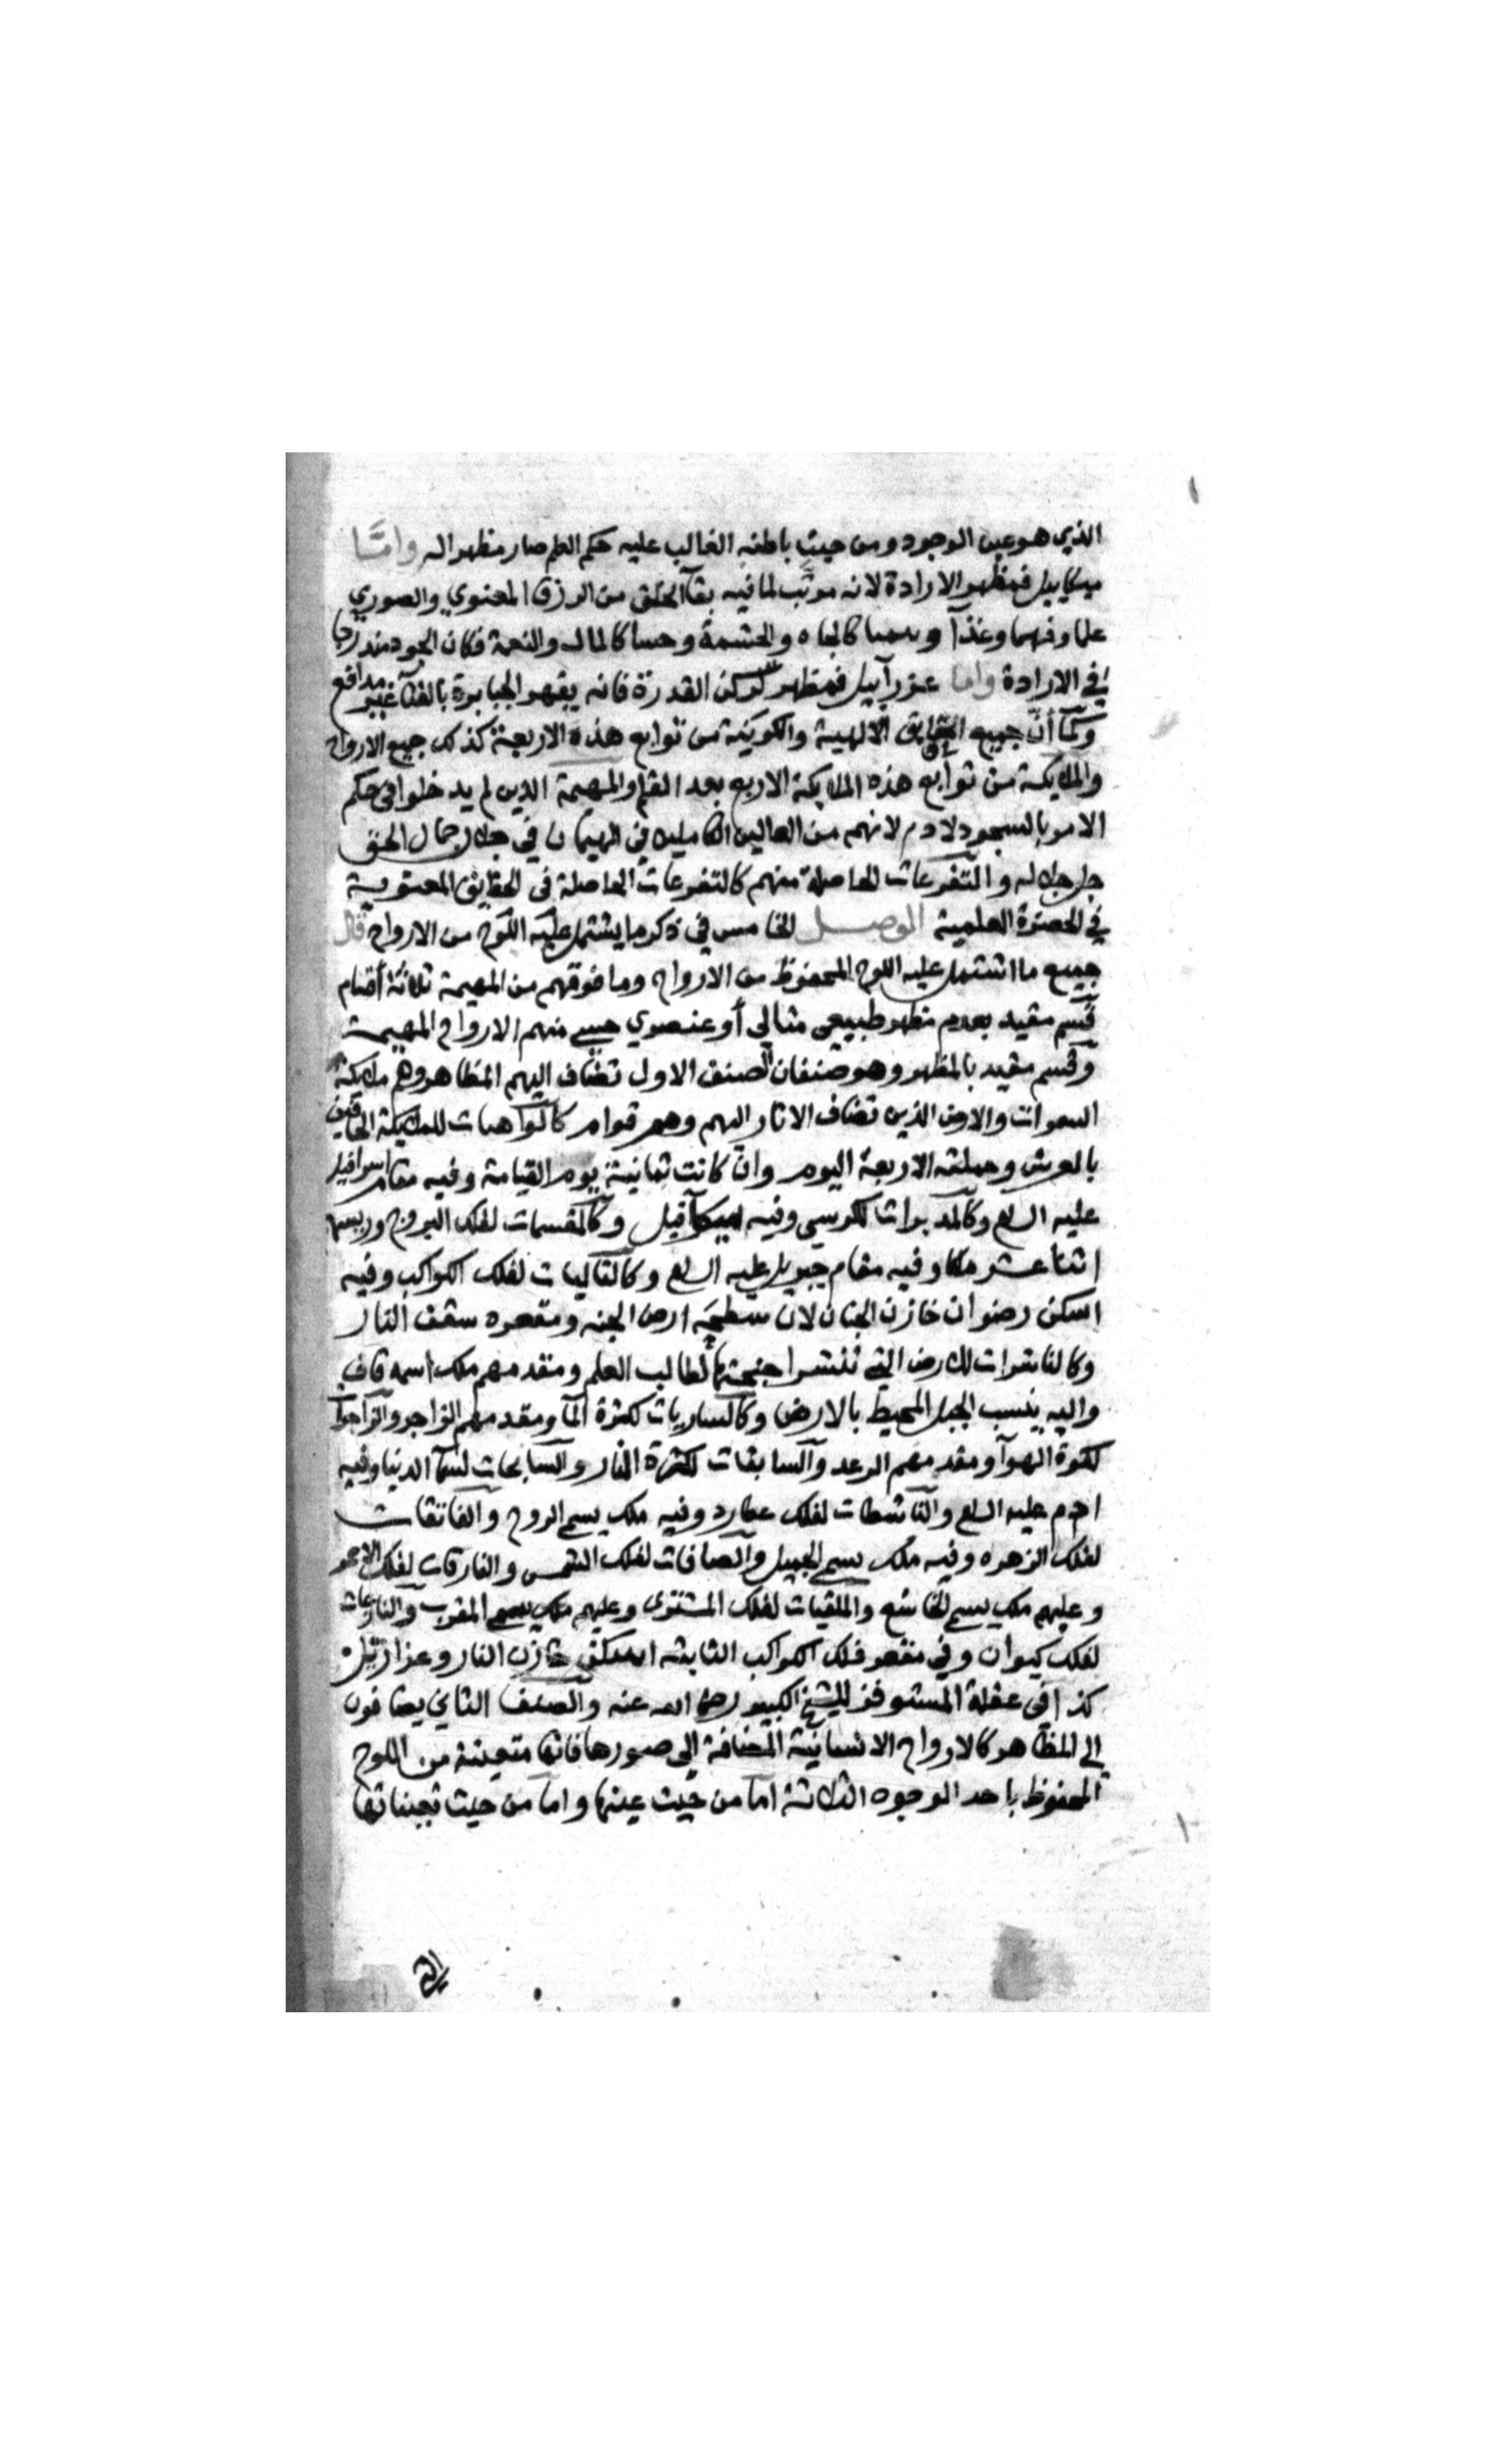 الذي هو عين الوجود ومن حيث باطنه الغالب عليه حكم العلم صار مظهرا له وامّا
ميكاييل فمظهر الارادة لانه مرتب لما فيه بقآ الخلق من الرزق المعنوي والصوري
علما وفهما وغذآ وحسا كالجاه والحشمة وحسا كالمال والنعمة فكان الجود مندرجا
في الارادة واما عزرآييل فمظهر ركن القدرة فانه يقهر الجبابرة بالفنآ غير مدافع
وكمآ أنّ جميع الحقايق الالهية والكونية من توابع هذه الاربعة كذلك جميع الارواح
والملايكة من توابع هذه الملايكة الاربع بعد القلم والمهيمة الذين لم يدخلوا في حكم
الامر بالسجود لادم لانهم من العالين الكاملين في الهيمان في جلال جمال الحق
جل جلاله والتفرعات الحاصلة منهم كالتفرعات الحاصلة في الحقايق المعنوية
في الحضرة العلمية الموصل الخامس في ذكر ما يشتمل عليه اللوح من الارواح قال
جميع ما اشتمل عليه اللوح المحفوظ من الارواح وما فوقهم من المهيمة ثلاثة أقسام
قسم مقيد بعدم مظهر طبيعي مثالي أو عنصري حسي منهم الارواح المهيمة
وقسم مقيد بالمظهر وهو صنفان الصنف الاول تضاف اليهم المظاهر وهم ملايكة
السموات والارض الذين تضاف الاثار اليهم وهم قوام كالواهبات للملايكة الحافين
بالعرش وحملته الاربعة اليوم وان كانت ثمانية يوم القيامة وفيه مقام اسرافيل
عليه السلم وكالمدبرات للكرسي وفيه ميكآئيل وكالمقسمات لفلك البروج وريسهم
اثنا عشر ملكا وفيه مقام جبريل عليه السلم وكالتاليات لفلك الكواكب وفيه
اسكن رضوان خازن الجنان لان سطحه ارض الجنه ومقعره سقف النار
وكالناشرات للارض التي تنشر اجنحتها لطالب العلم ومقدمهم ملك اسمه قاف
واليه ينسب الجبل المحيط بالارض وكالساريات لكرة المآ ومقدمهم الزاجر والزاجرات
لكرة الهوآ ومقدمهم الرعد والسابقات لكرة النار والسابحات لسمآ الدنيا وفيه
ادم عليه السلم والناشطات لفلك عطارد وفيه ملك يسمى الروح والفاتقات
لفلك الزهره وفيه ملك يسمى الجميل والصافات لفلك الشمس والفارقات لفلك الاحمر
وعليهم ملك يسمى الخاشع والملقيات لفلك المشترى وعليهم ملك يسمى المقرب والنازعات
لفلك كيوان وفي مقعر فلك الكواكب الثابتة اسكن خازن النار وعزازئيل
كذا في عقلة المستوفز للشيخ الكبير رضي الله عنه والصنف الثاني يضافون
الى المظاهر كالارواح الانسانية المضافة إلى صورها فانها متعينة من اللوح
المحفوظ باحد الوجوه الثلاثة اما من حيث عينها واما من حيث تعيناتها